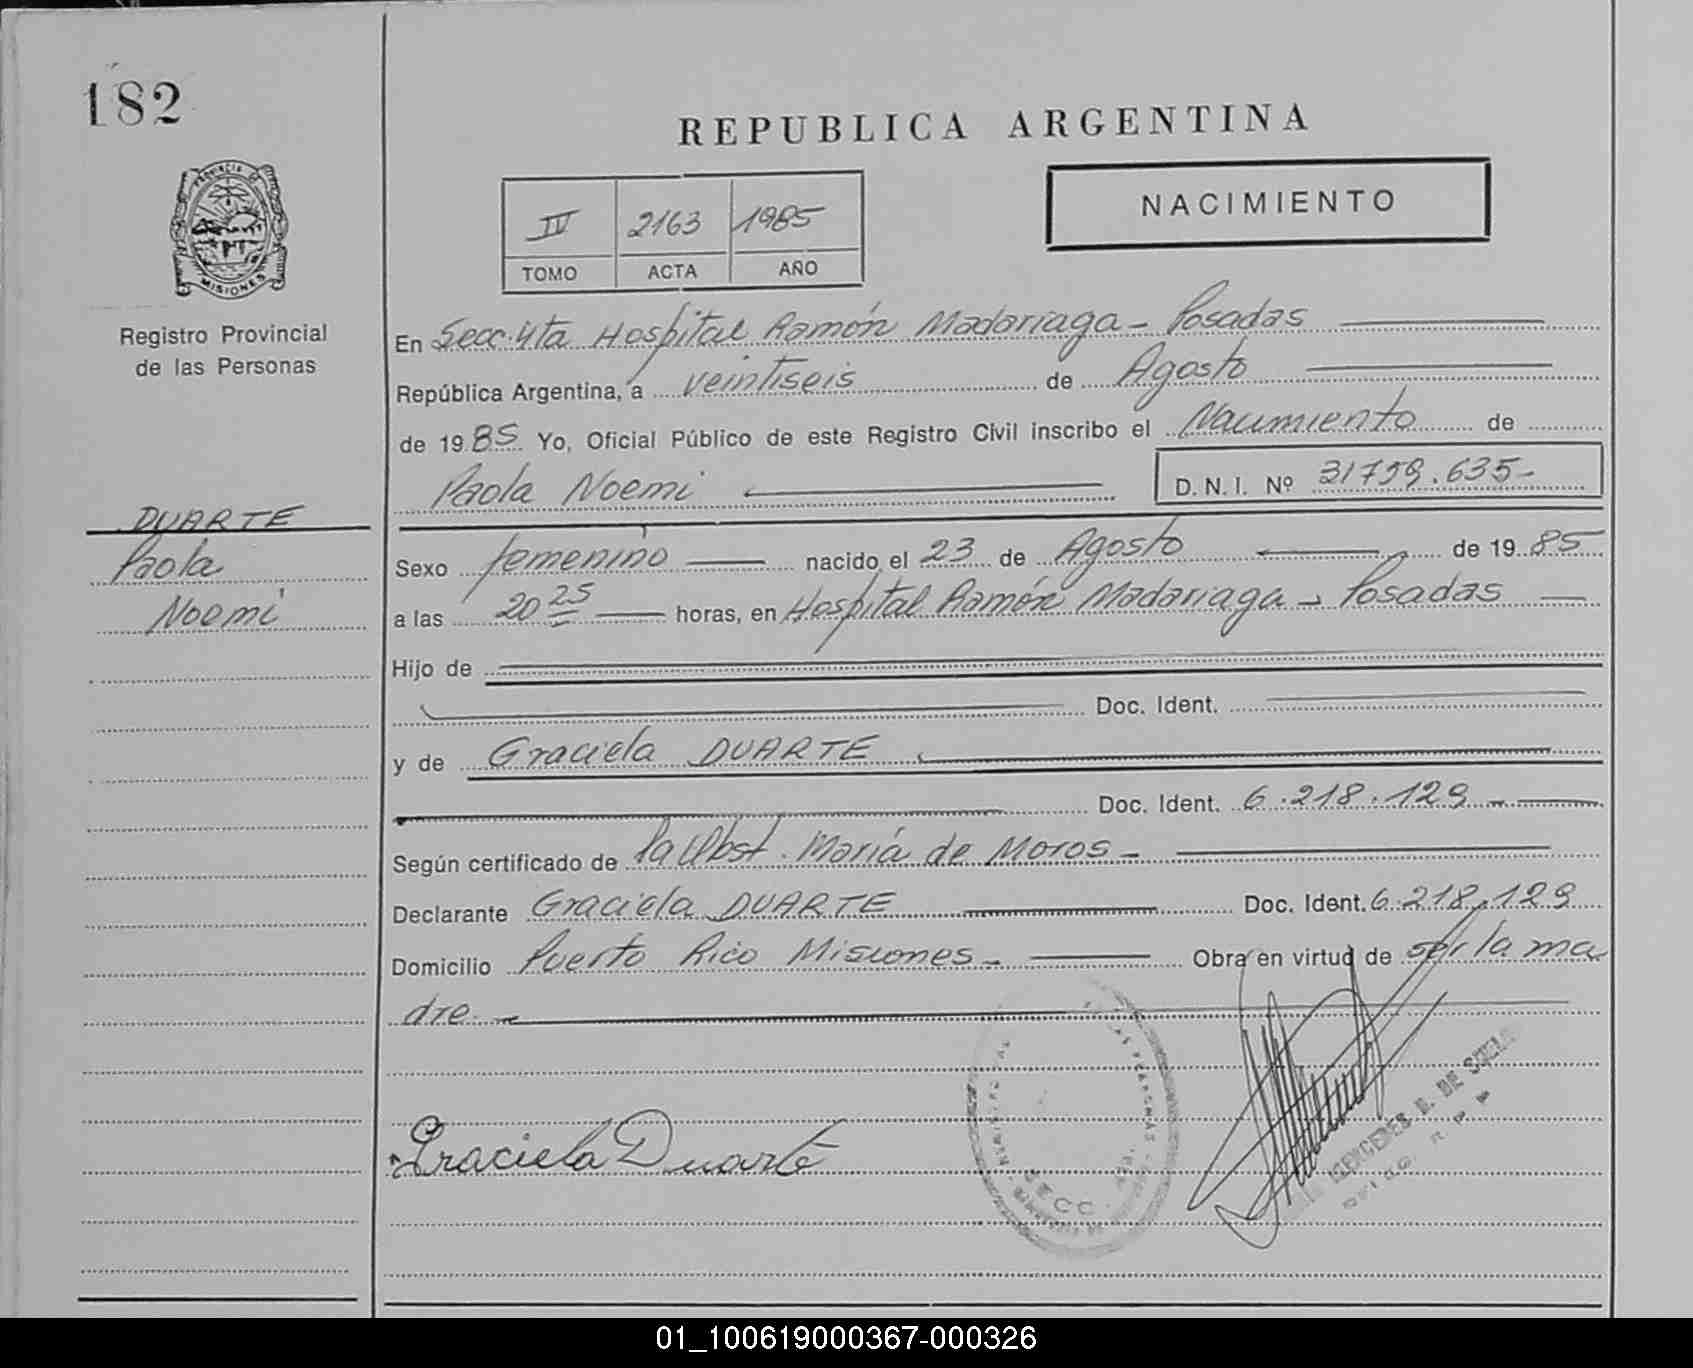 182
REPUBLICA ARGENTINA
NACIMIENTO
IV 2163 1985
TOMO ACTA AÑO
PROVINCIA DE MISIONES
Registro Provincial
de las Personas
En Secc. 4ta Hospital Ramón Madariaga - Posadas
República Argentina, a veintiseis de Agosto
de 1985 Yo, Oficial Público de este Registro Civil inscribo el Nacimiento de
Paola Noemi D.N.I. Nº 31759.635-
DUARTE
Paola
Noemi
Sexo femenino nacido el 23 de Agosto de 1985
a las 20 25 horas, en Hospital Ramón Madariaga - Posadas
Hijo de
Doc. Ident.
y de Graciela DUARTE
Doc. Ident. 6.218.129
Según certificado de la Obst. María de Moros -
Declarante Graciela DUARTE Doc. Ident. 6.218.129
Domicilio Puerto Rico Misiones - Obra en virtud de ser la ma
dre
Graciela Duarte
SECC.
MERCEDES DE
01_100619000367-000326